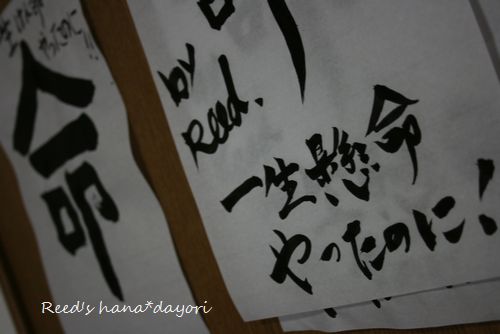 生けん命
やったのに!!
命
by
Reed.
一生懸命
やったのに!
Reed's hana*dayori